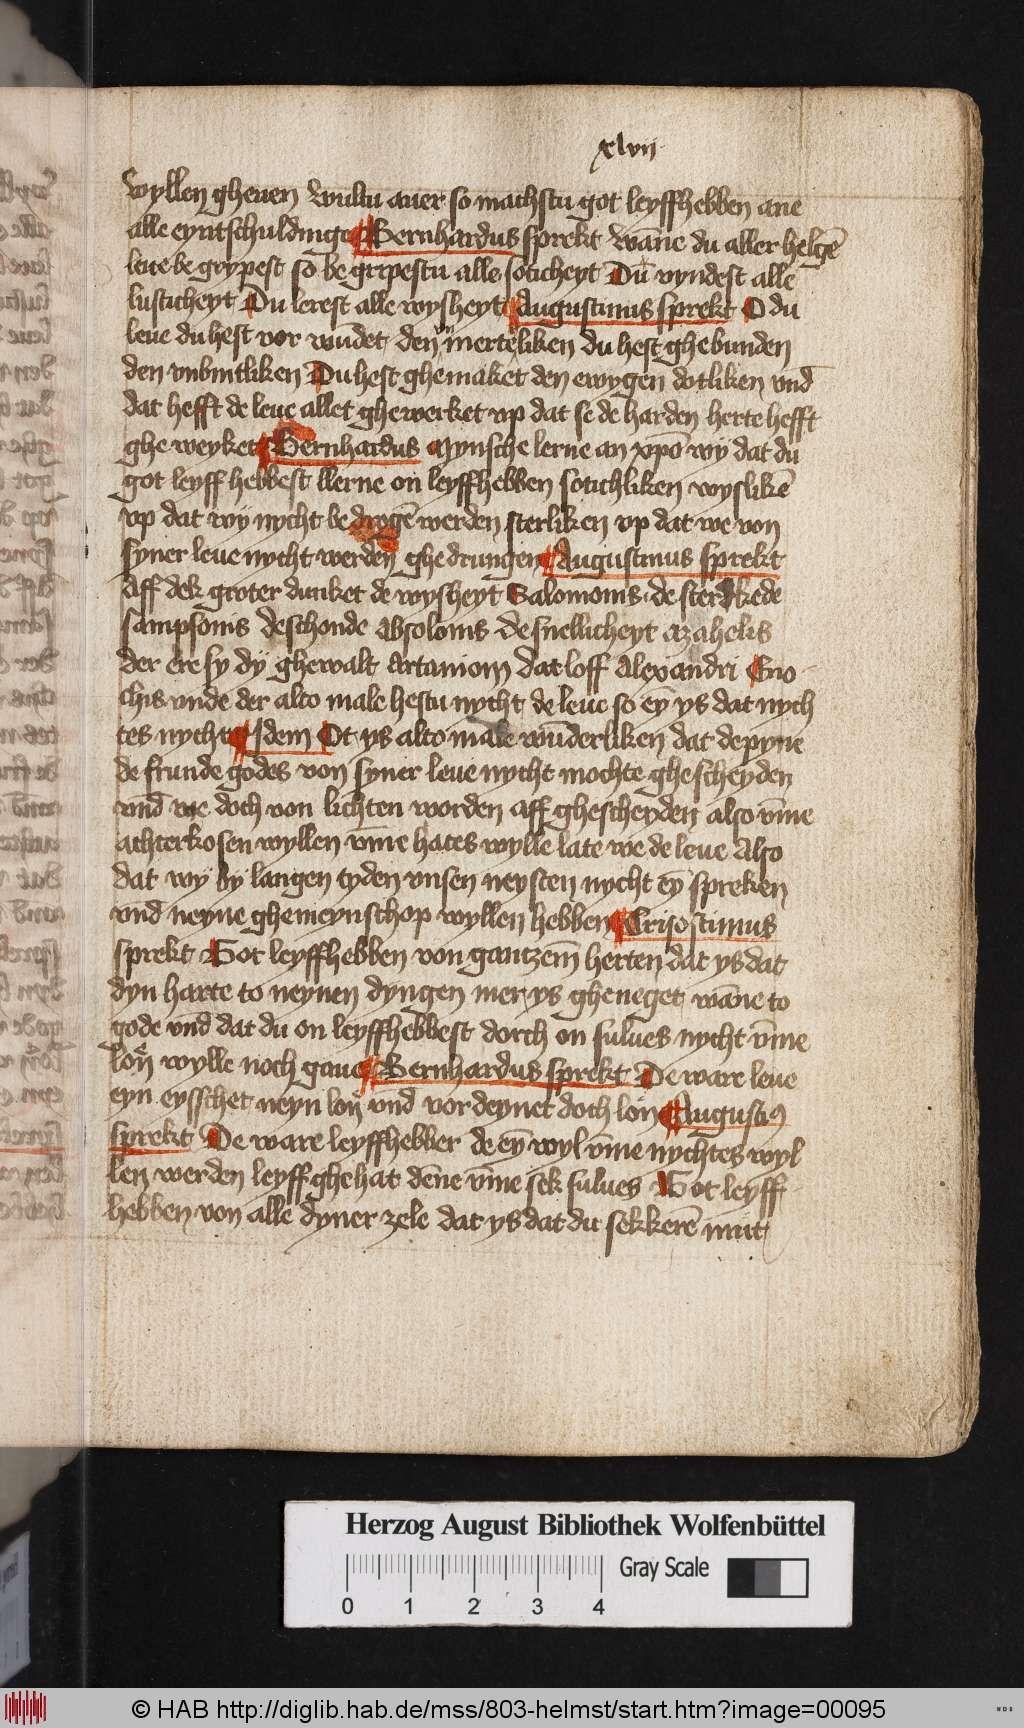 xlvij
wyllen gheuen wultu auer so machstu got leyffhebben ane
alle eyntschuldinge Bernhardus sprekt wāne du aller helgē
leue be grypest so be gripestu alle soticheyt Du vyndest alle
lusticheyt Du lerest alle wysheyt Augustinus sprekt O du
leue du hest vor wūdet den merteliken du hest ghebunden
den vnbintliken Du hest ghemaket den ewygen dotliken vnd
dat hefft de leue allet ghewerket vp dat se de harden herte hefft
ghe weyket Bernhardus Mynsche lerne an xpō wy dat du
got leyff hebbest llerne on leyffhebben sotichliken wyslikē
vp dat wy nycht be drogē werden sterliken vp dat we von
syner leue nycht werden ghedrungen Augustinus sprekt
Aff dek groter dunket de wysheyt Salomonis de sterkede
sampsonis de schonde Absolonis De snellicheyt azahelis
der ere sy dy ghewalt dat loff Alexandri Eno
chis vnde der alto male hestu nycht de leue so ēy ys dat nych
tes nycht Idem Ot ys alto male wūderliken dat de pyne
de frunde godes von syner leue nycht mochte ghescheyden
vnd we doch von lichten worden aff ghescheyden also vm̄e
achterkosen wyllen vm̄e hates wylle late we de leue Also
dat wy by langen tyden vnsen neysten nycht ēy spreken
vnd neyne ghemeynschop wyllen hebben Crisostimus
sprekt Got leyffhebben von gantzem̄ herten dat ys dat
dyn harte to neynen dyngen mer ys gheneget wāne to
gode vnd dat du on leyffhebbest dorch on sulues nycht vm̄e
lon wylle noch gaue Bernhardus sprekt De ware leue
eyn eysschet neyn lon vnd vordeynet doch lon Augustiꝰ
sprekt De ware leyffhebber de ēy wyl vm̄e nychtes wyl
len werden leyff ghehat dēne vm̄e sek sulues Got leyff
hebben von alle dyner zele dat ys dat du sekkerē mut
Herzog August Bibliothek Wolfenbüttel
Gray Scale
0 1 2 3 4
© HAB http://diglib.hab.de/mss/803-helmst/start.htm?image=00095